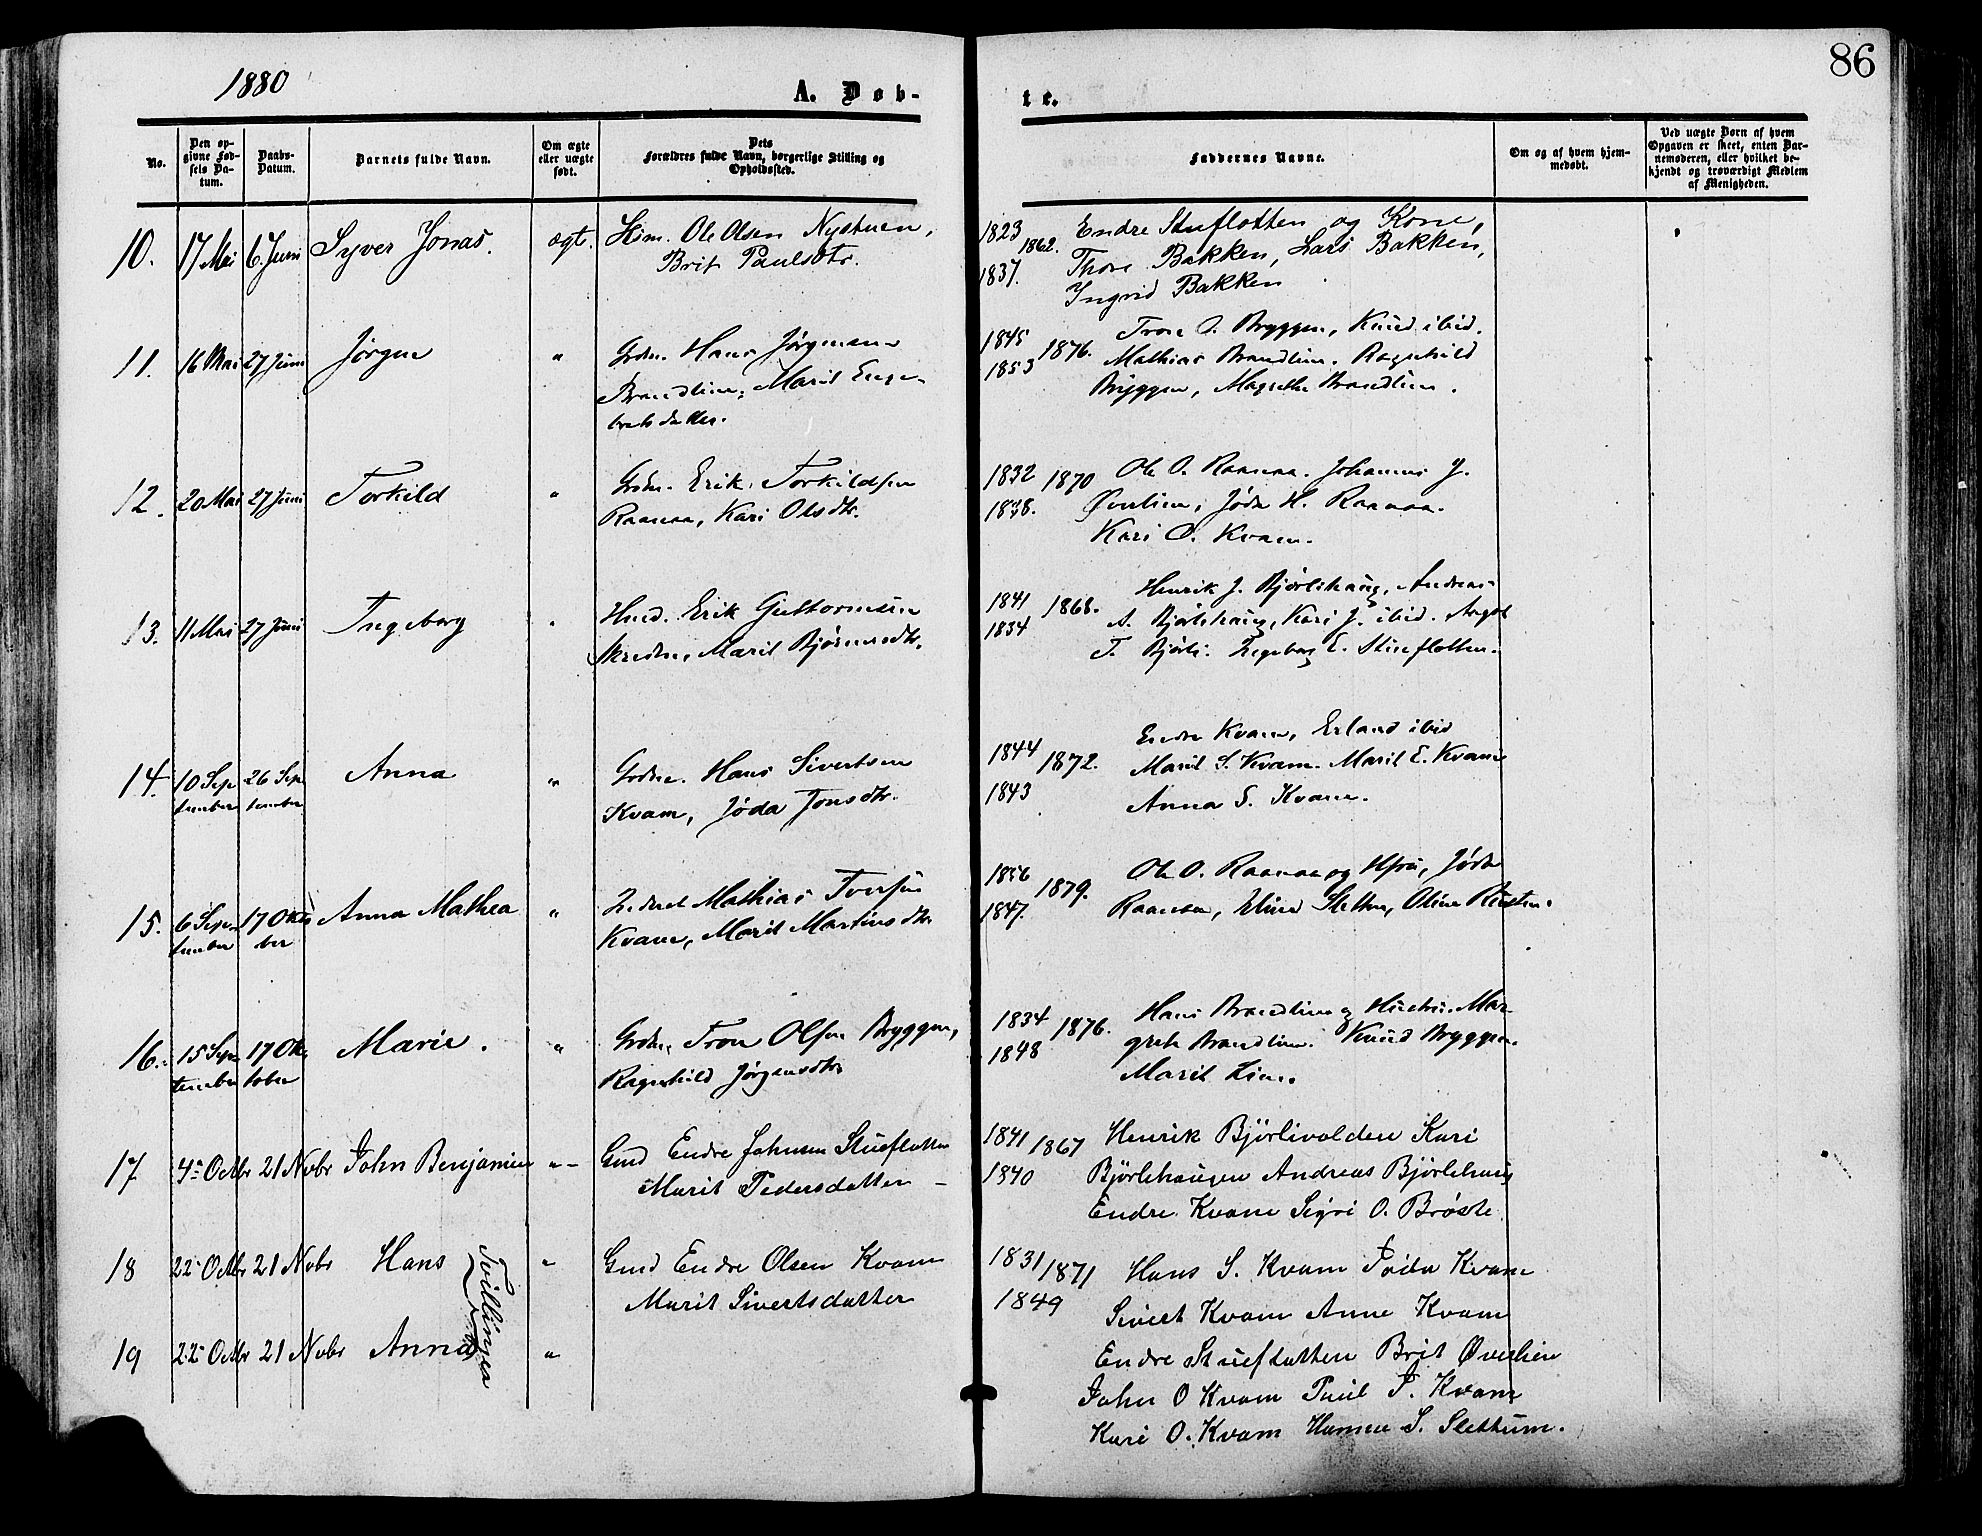 86
1880
A. Døb-
te.
No.
Den op-
givne Fød-
sels Da-
tum.
Daabs-
Datum.
Barnets fulde Navn.
Om ægte
eller uægte
født.
Dets
Forældres fulde Navn, borgerlige Stilling og
Opholdssted.
Faddernes Navne.
Om og af hvem hjem-
medøbt.
Ved uægte Børn af hvem
Opgaven er skeet, enten Bar-
nemoderen, eller hvilket be-
kjendt og troværdigt Medlem
af Menigheden.
10. 17 Mai 6 Juni Syver Jonas. ægt. Hsm. Ole Olsen Nystuen,
Brit Paulsdtr.
1823 1862. Endre Stuflotten og Kone,
1837. Thore Bakken, Lars Bakken,
Ingrid Bakken
11. 16 Mai 27 Juni Jørgen " Grdbr. Hans Jørgensen
Brændlien, Marit Enge-
bretsdatter.
1845 1876. Tron O. Bryggen, Knud ibid.
1853 Mathias Brændlien. Ragnhild
Bryggen, Magrethe Brændlien.
12. 20 Mai 27 Juni Torkild " Grdbr. Erik Torkildsen
Raanaa, Kari Olsdtr.
1832 1870 Ole O. Raanaa. Johannes J.
1838. Øverlien, Jøda H. Raanaa.
Kari O. Kvam.
13. 11 Mai 27 Juni Ingeborg " Husd. Erik Guttormsen
Skreden, Marit Bjørnsdtr.
1841 1868. Henrik J. Bjørlihaug, Andreas
1834 A. Bjørlihaug, Kari J. ibid. Angot
T. Bjørli. Ingeborg E. Stueflotten.
14. 10 Sep 26 Sep Anna " Grdbr. Hans Sivertsen
tember tember Kvam, Jøda Jonsdtr.
1844 1872. Endre Kvam, Erland ibid
1843 Marit S. Kvam. Marit E. Kvam
Anna S. Kvam.
15. 6 Sep 17 Okto Anna Mathea " Inderst Mathias Iversen
tember ber Kvam, Marit Martinsdtr.
1856 1879. Ole O. Raanaa og Hstru, Jøda
1847. Raanaa, Eline Sletten, Oline Rusten.
16. 15 Sep 17 Ok Marie. " Grdbr. Tron Olsen Bryggen,
tember tober Ragnhild Jørgensdtr
1834 1876. Hans Brændlien og Hustru. Mar-
1848 grete Brændlien. Knud Bryggen.
Marit Lien.
17 4de Octbr 21 Nvbr John Benjamin " Gmd Endre Johnsen Stueflotten
Marit Pedersdatter
1841 1867 Henrik Bjørlivolden Kari
1840 Bjørlehaugen Andreas Bjørlehaug
Endre Kvam Sigri O. Brøste
18 22 Octbr 21 Nvbr Hans " Gmd Endre Olsen Kvam
Marit Sivertsdatter
Tvillinger
1831 1871 Hans S. Kvam Jøda Kvam
1849 Sivert Kvam Anne Kvam
19 22 Octbr 21 Nvbr Anna "
Endre Stueflotten Brit Øverlien
John O Kvam Paul T. Kvam
Kari O. Kvam Hanna S. Slettum.